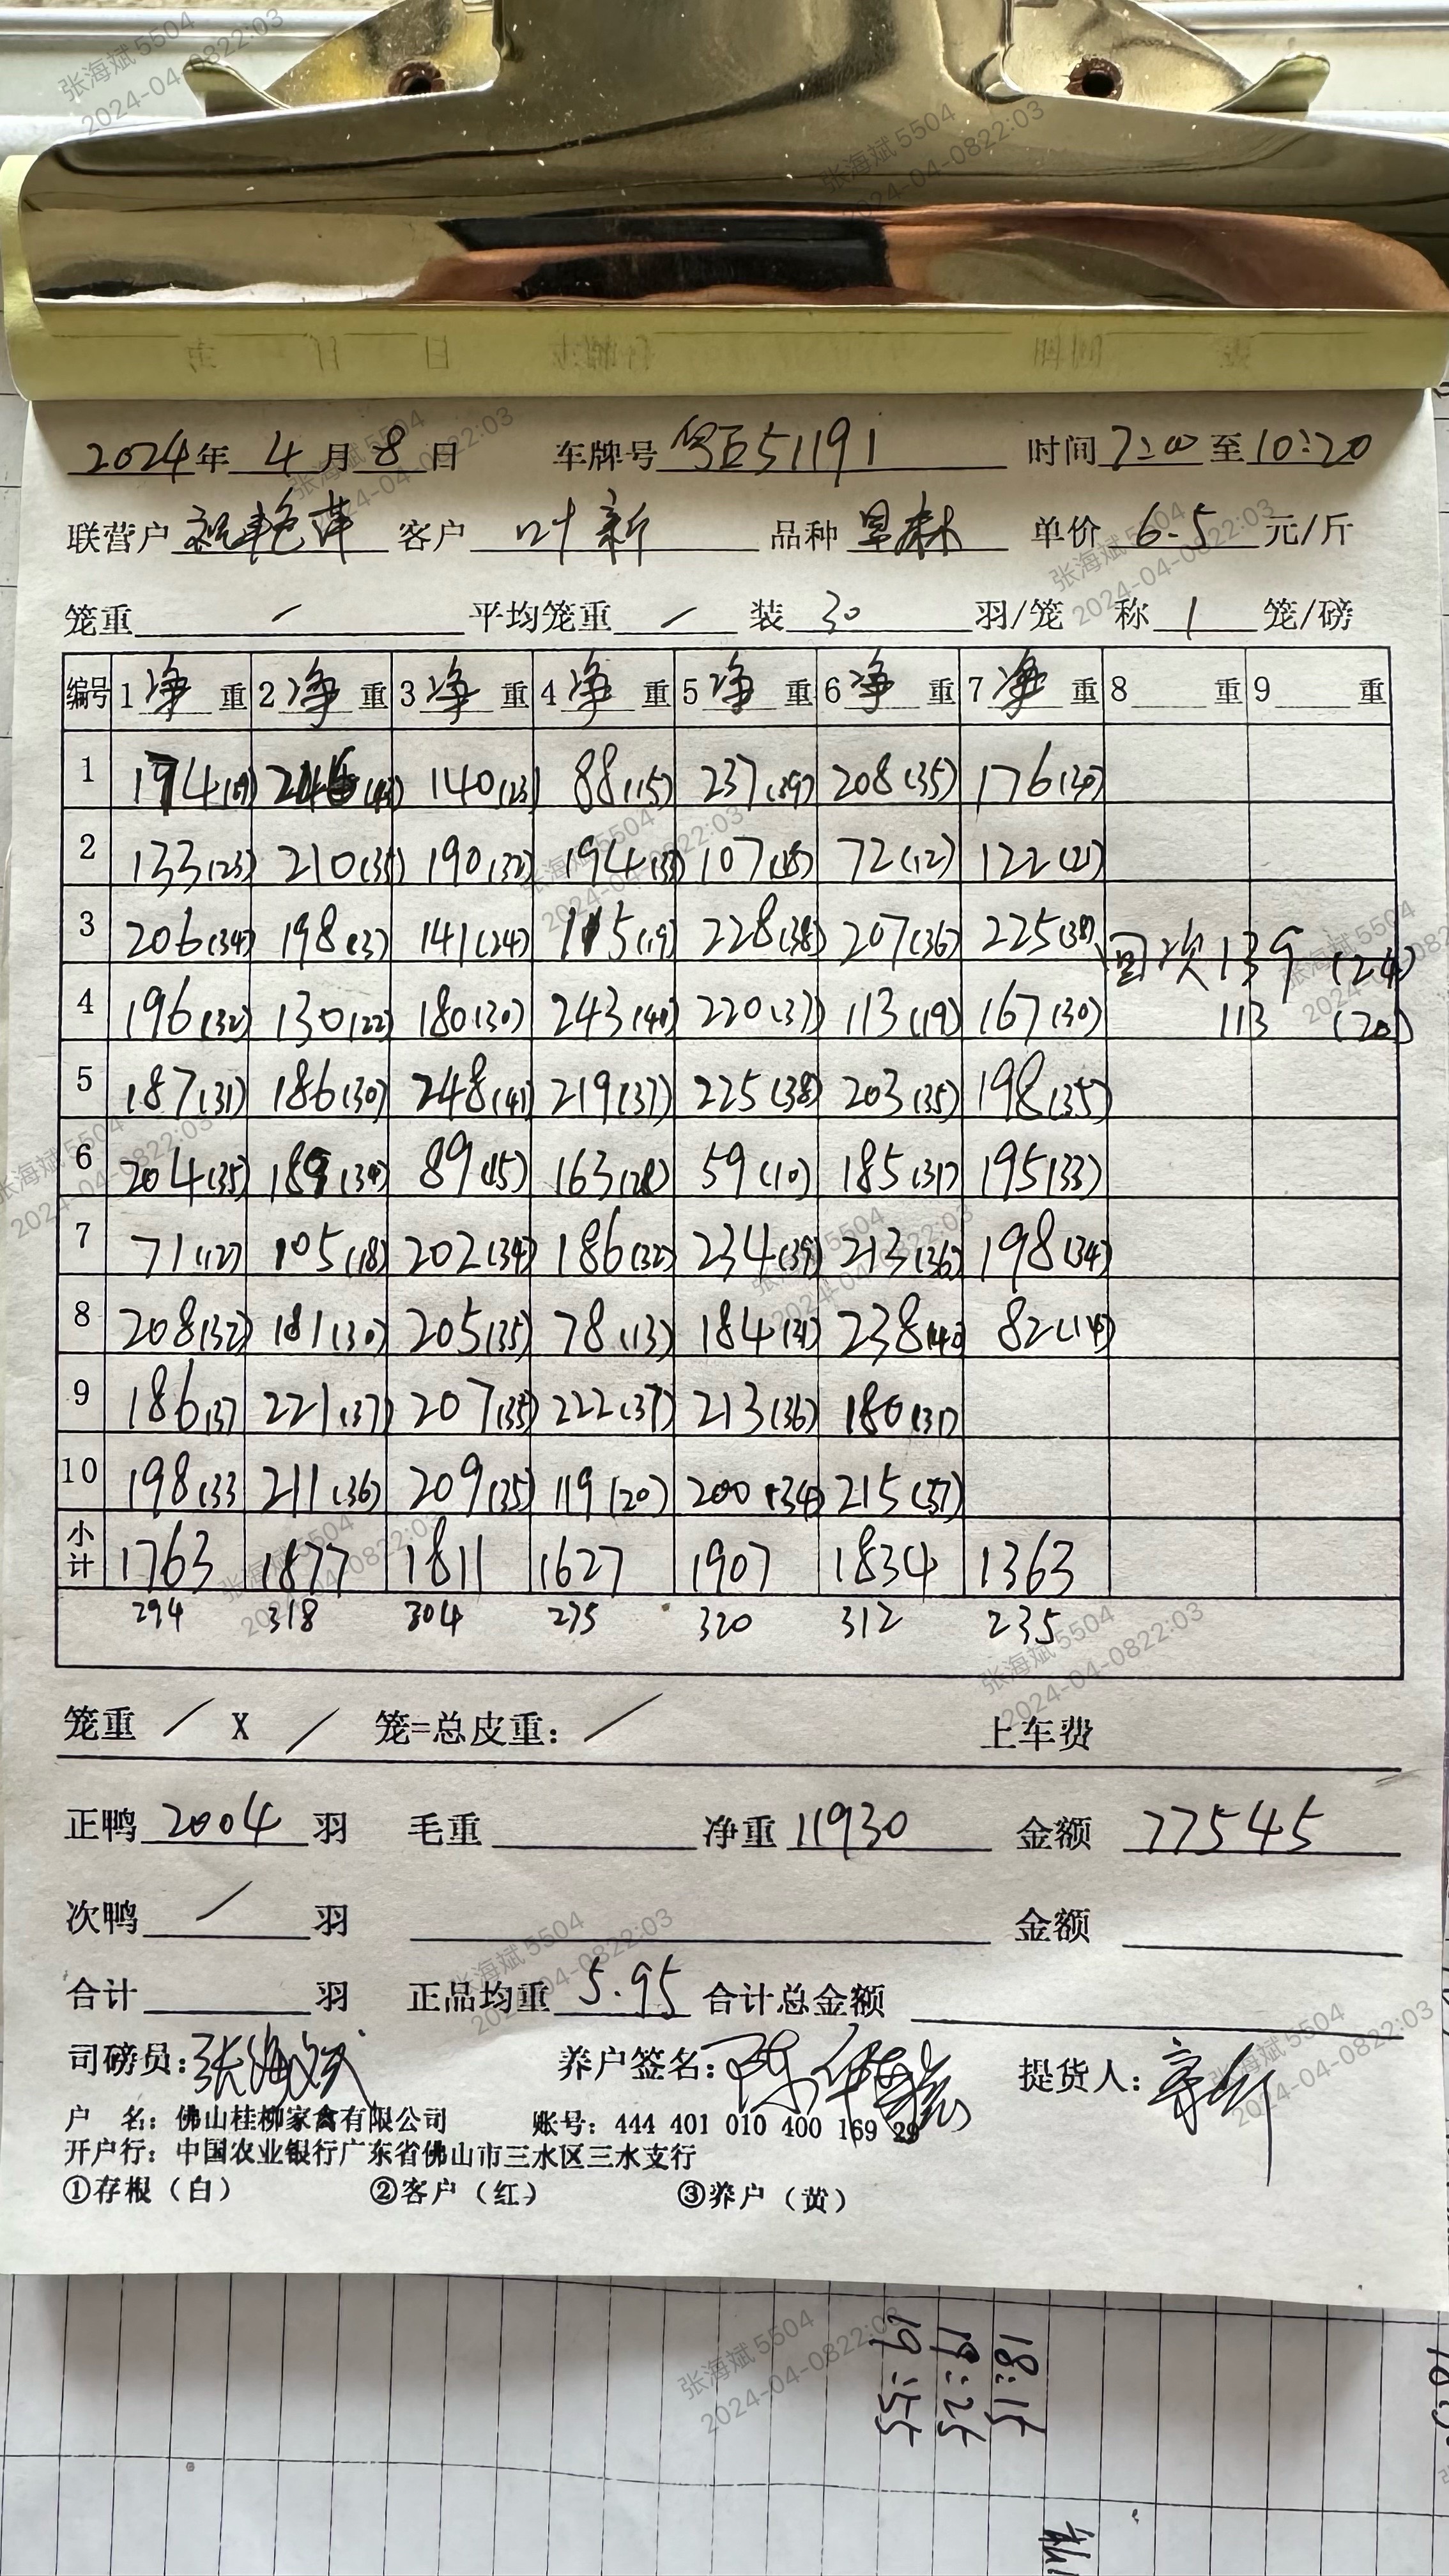 2024年 4月 8日 车牌号 粤E51191 时间 7:00 至 10:20
联营户 客户 叶新 品种 单价 6.5 元/斤
笼重 / 平均笼重 / 装 30 羽/笼 称 1 笼/磅
编号 1 净 重 2 净 重 3 净 重 4 净 重 5 净 重 6 净 重 7 净 重 8 重 9 重
1 174 246 140(23) 88(15) 237(39) 208(35) 176(30)
2 133(23) 210(35) 190(32) 194(33) 107(18) 72(12) 122(21)
3 206(34) 198(33) 141(24) 115(19) 228(38) 207(36) 225(38) 回次139 (24)
4 196(32) 130(22) 180(30) 243(40) 220(37) 113(19) 167(30) 113 (20)
5 187(31) 186(30) 248(41) 219(37) 225(38) 203(35) 198(35)
6 204(35) 189(34) 89(15) 163(28) 59(10) 185(31) 195(33)
7 71(12) 105(18) 202(34) 186(32) 234(39) 213(36) 198(34)
8 208(32) 181(30) 205(35) 78(13) 184(31) 238(40) 82(14)
9 186 221(37) 207(35) 222(37) 213(36) 180(31)
10 198(33 211(36) 209(35) 119(20) 200(34) 215(37)
小计 1763 1877 1811 1627 1907 1834 1363
294 318 304 275 320 312 235
笼重 / X / 笼=总皮重: / 上车费
正鸭 2004 羽 毛重 净重 11930 金额 77545
次鸭 / 羽 金额
合计 羽 正品均重 5.95 合计总金额
司磅员: 张海斌 养户签名: 提货人:
户 名: 佛山桂柳家禽有限公司 账号: 444 401 010 400 169 29
开户行: 中国农业银行广东省佛山市三水区三水支行
①存根（白） ②客户（红） ③养户（黄）
18:15
19:25
19:55
张海斌 5504
2024-04-0822:03